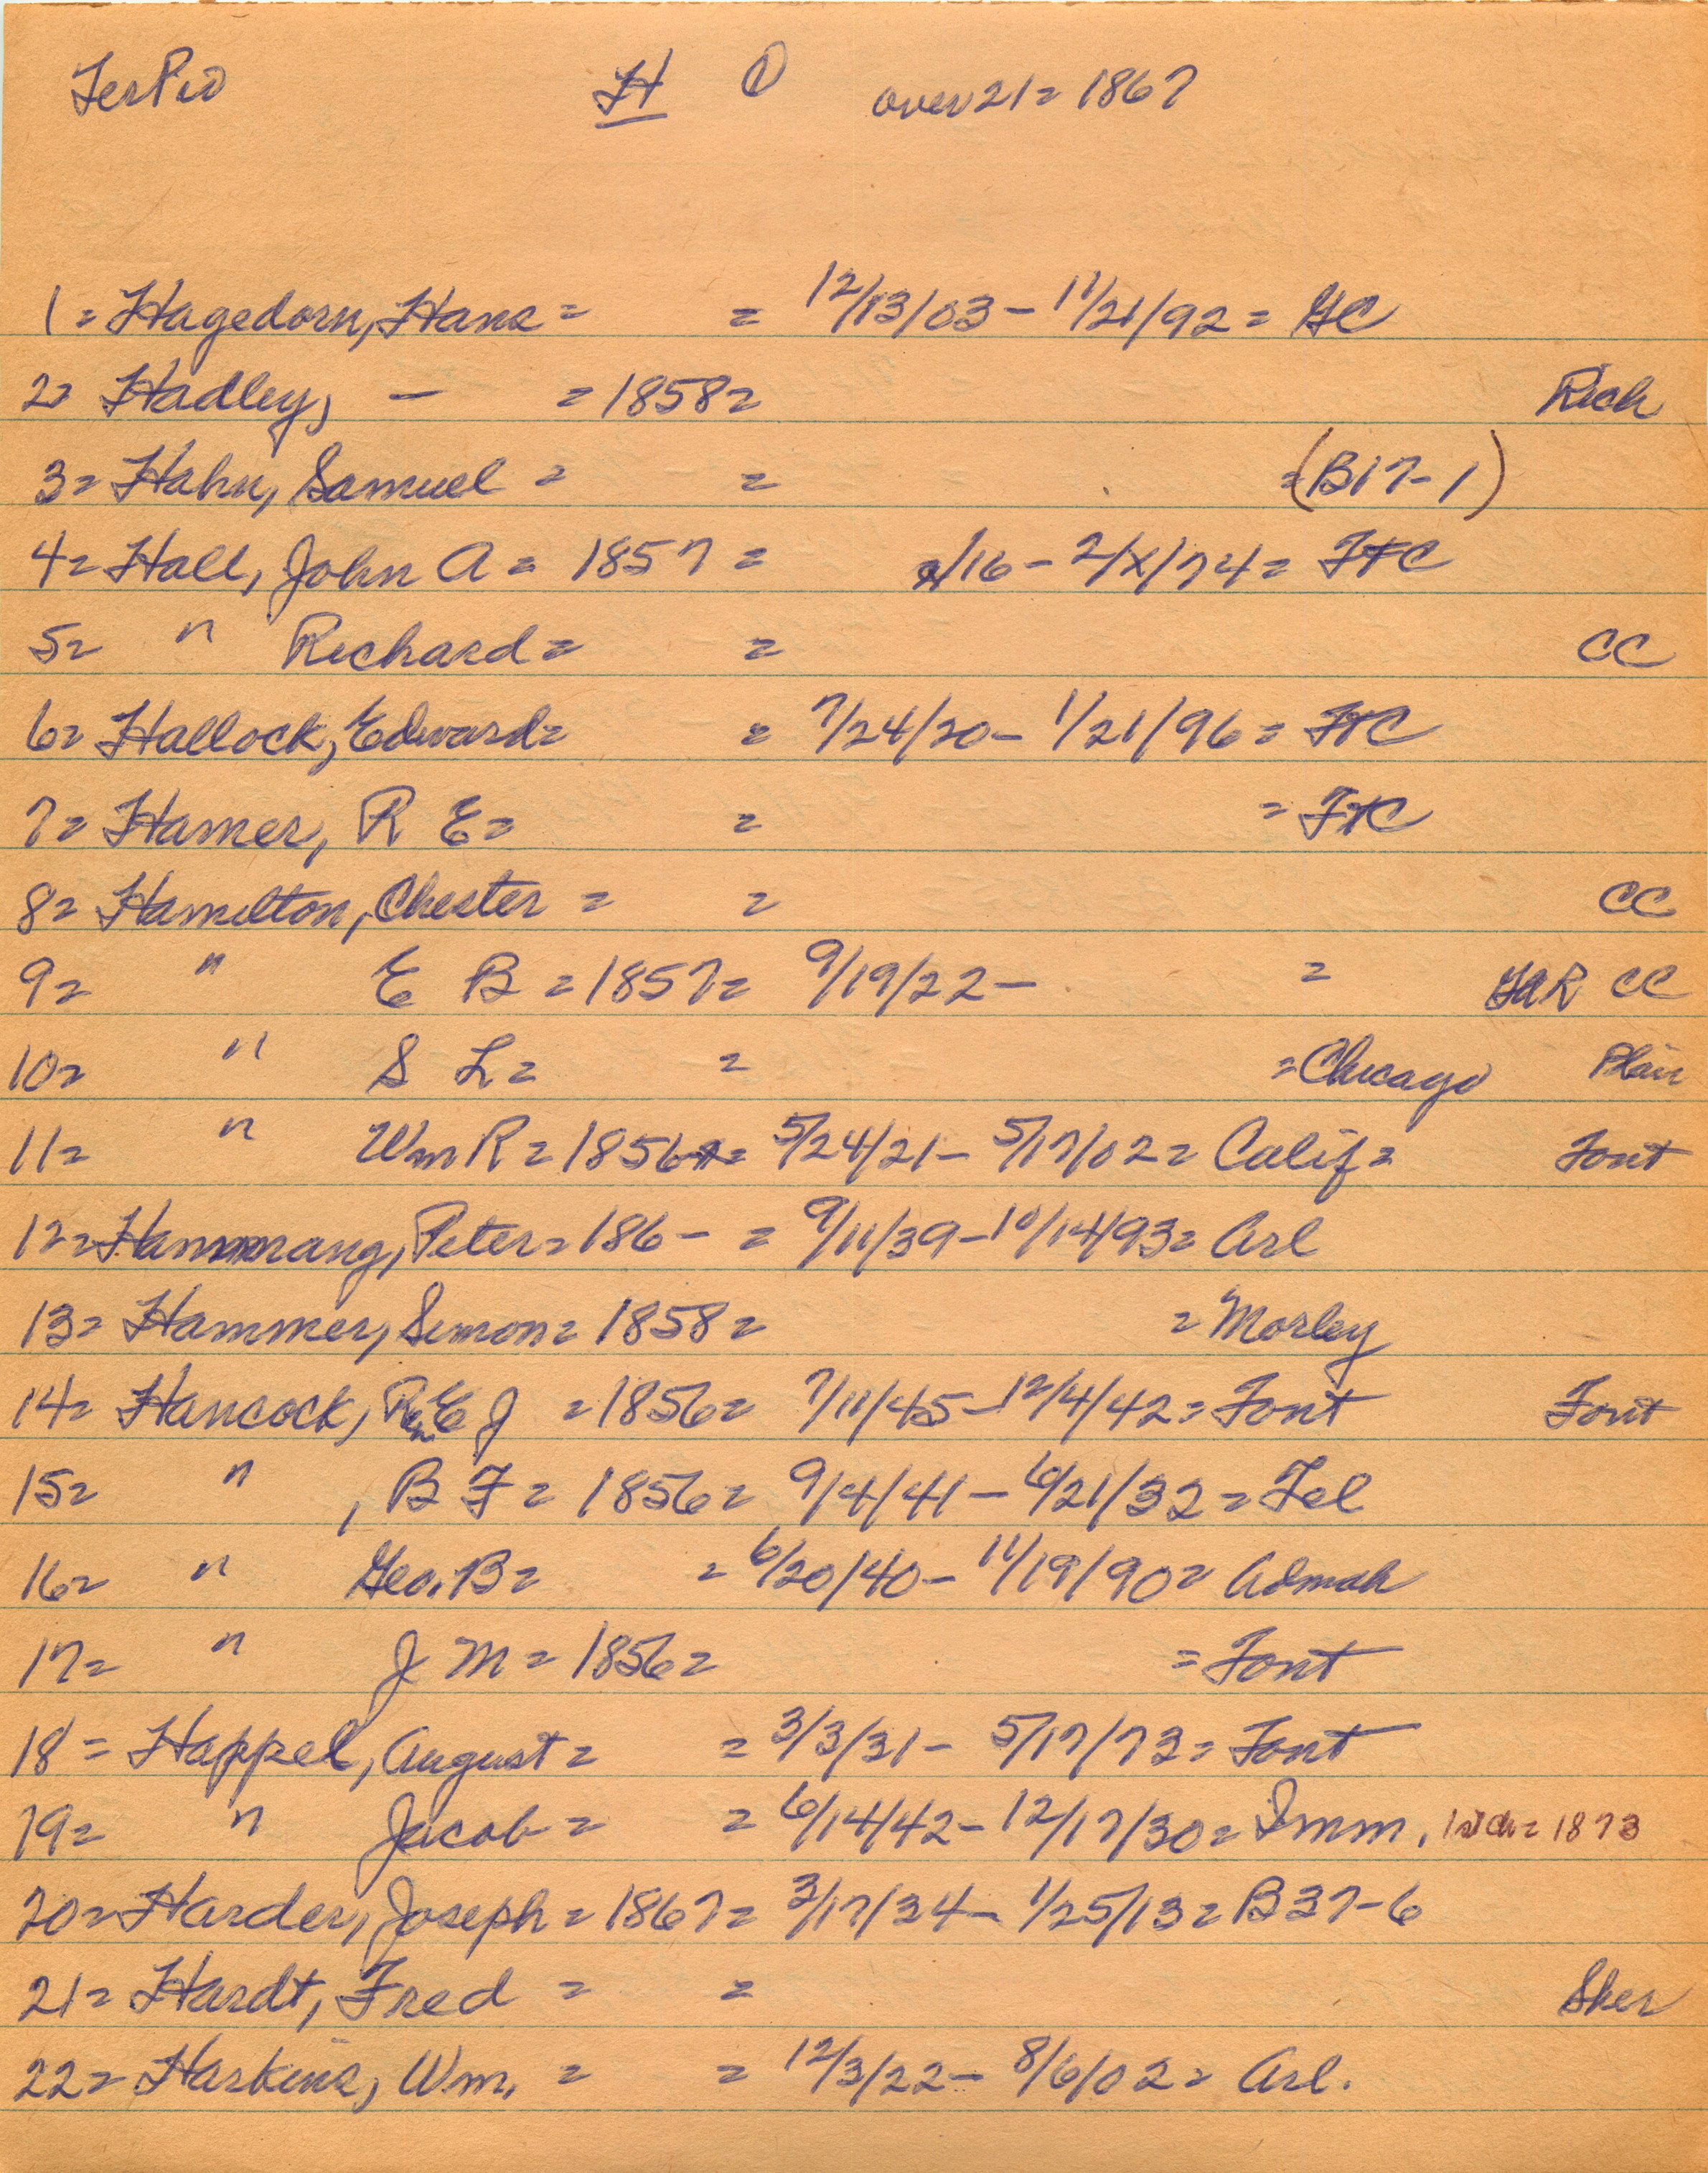 TerPio H ① over 21 = 1867
1 = Hagedorn, Hans = = 12/13/03 - 11/21/92 = GC
2 = Hadley, - = 1858 = Rich
3 = Hahn, Samuel = = = (B17-1)
4 = Hall, John A = 1857 = /16 - 2/X/74 = FtC
5 = " Richard = = CC
6 = Hallock, Edward = = 7/24/20 - 1/21/96 = FtC
7 = Hamer, R E = = = FtC
8 = Hamilton, Chester = = CC
9 = " E B = 1857 = 9/19/22 - = GAR CC
10 = " S L = = = Chicago Plain
11 = " Wm R = 1856 = 5/24/21 - 5/17/02 = Calif = Font
12 = Hammang, Peter = 186- = 9/11/39 - 10/14/93 = Arl
13 = Hammer, Simon = 1858 = = Morley
14 = Hancock, Rev E J = 1856 = 7/11/45 - 12/4/42 = Font Font
15 = " , B F = 1856 = 9/4/41 - 6/21/32 = Tel
16 = " Geo. B = = 6/20/40 - 11/19/90 = Admah
17 = " J M = 1856 = = Font
18 = Happel, August = = 3/3/31 - 5/17/73 = Font
19 = " Jacob = = 6/14/42 - 12/17/30 = Imm. 1st ch = 1873
20 = Harder, Joseph = 1867 = 3/17/34 - 1/25/13 = B37-6
21 = Hardt, Fred = = Sher
22 = Harkins, Wm. = = 12/3/22 - 8/6/02 = Arl.